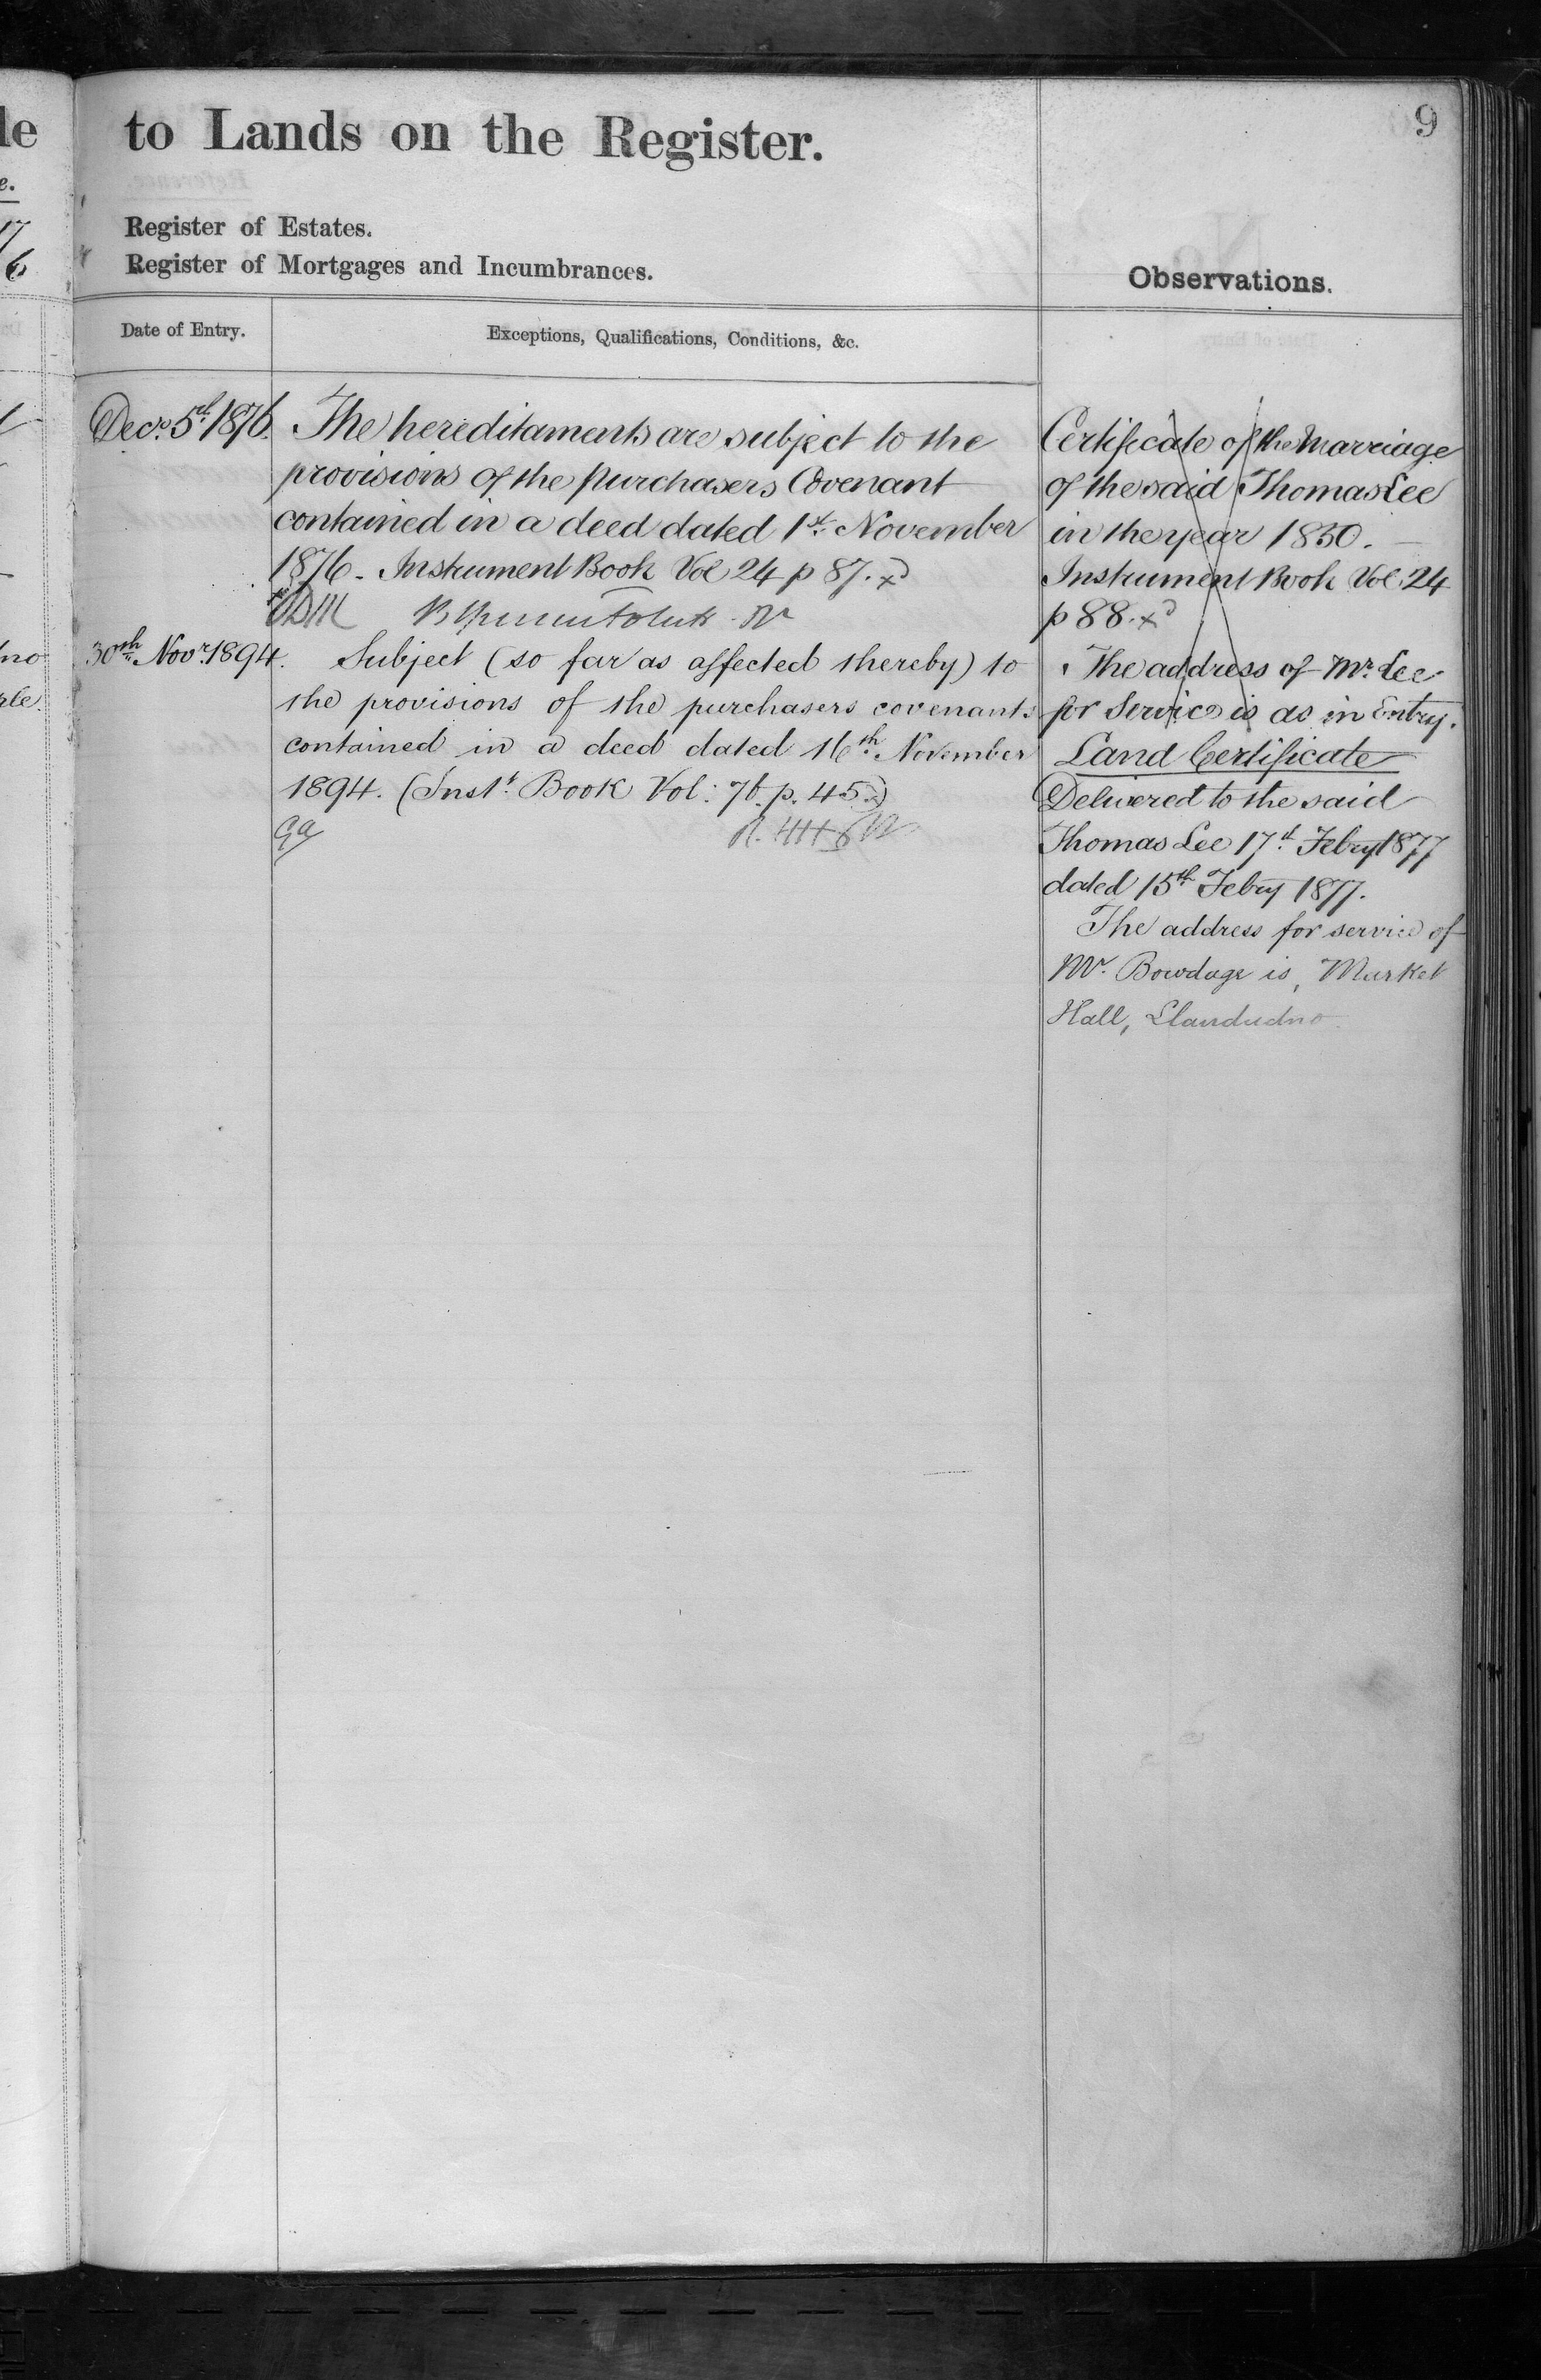 9
to Lands on the Register.
Register of Estates.
Register of Mortgages and Incumbrances.
Observations.
Date of Entry.
Exceptions, Qualifications, Conditions, &c.
Decr. 5th 1876.
The hereditaments are subject to the
provisions of the purchasers Covenant
contained in a deed dated 1st November
1876. Instrument Book Vol 24 p 87. x
30th Novr. 1894.
Subject (so far as affected thereby) to
the provisions of the purchasers covenants
contained in a deed dated 16th November
1894. (Inst. Book Vol: 76. p. 45.)
Certificate of the Marriage
of the said Thomas Lee
in the year 1850.
Instrument Book Vol. 24
p 88. x
The address of Mr. Lee
for Service is as in Entry.
Land Certificate
Delivered to the said
Thomas Lee 17th Febry 1877
dated 15th Febry 1877.
The address for service of
Mr. Bowdage is, Market
Hall, Llandudno.